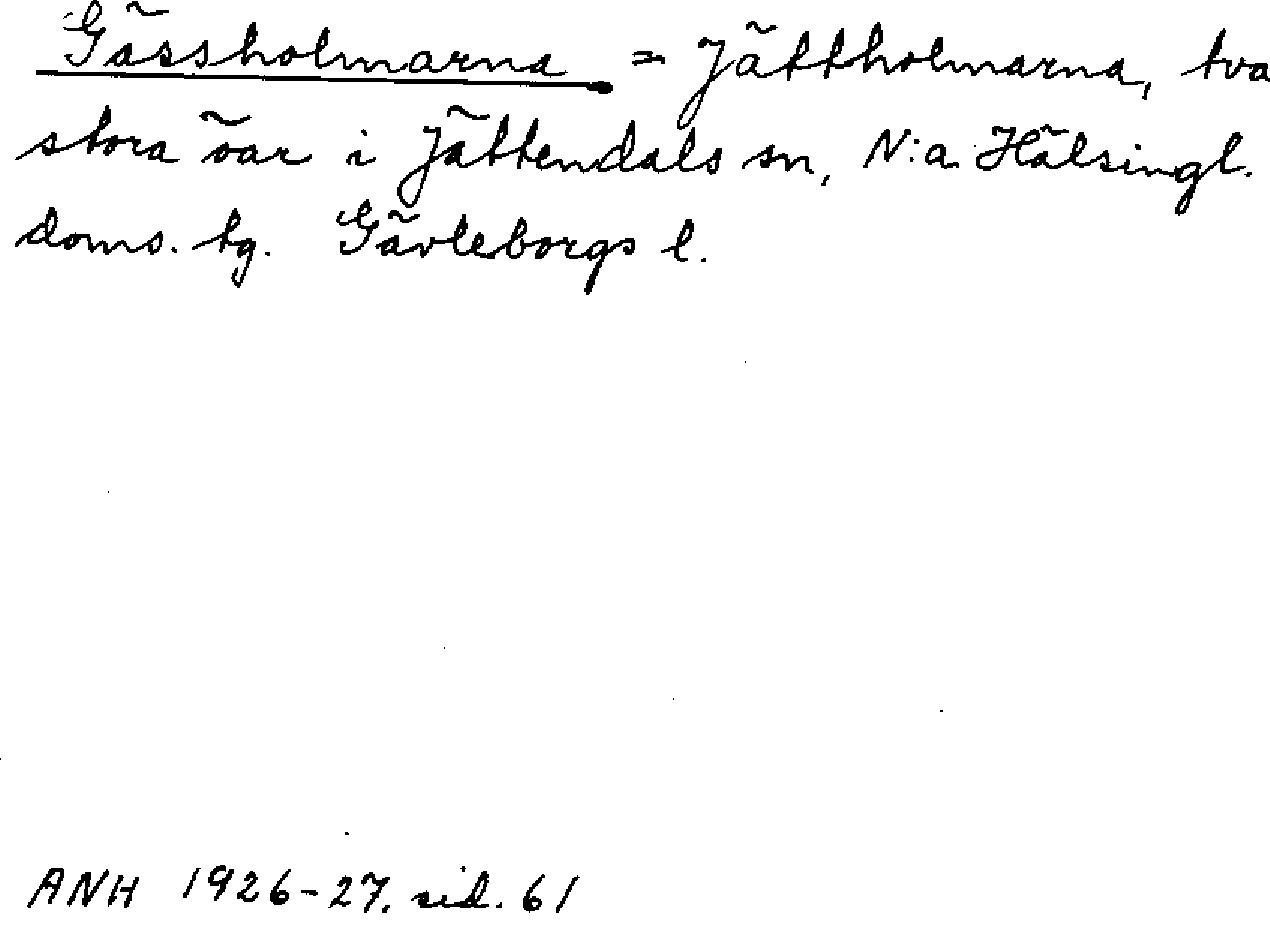 Gässholmarna = Jättholmarna, tva
stora öar i Jättendals sn, N:a Hälsingl.
doms. tg. Gävleborgs l.
ANH 1926-27. sid. 61